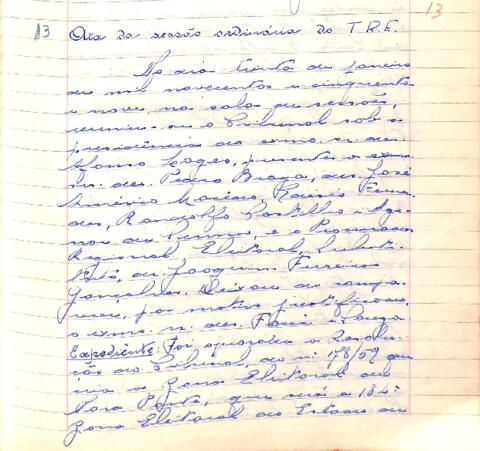 13
13 Ata da sessão ordinária do T.R.E.
No dia trinta de janeiro
de mil novecentos e cinquenta
e nove, na sala de sessões,
reuniu-se o Tribunal sob a
presidência do exmo. sr. des.
Afonso Lages, presentes os exmos.
srs. des. Pedro Braga, drs. José
Américo Macedo,
des, Randolfo Castilho e Age-
nor de Senna, e o Procurador
Regional Eleitoral, Substi-
tuto, dr. Joaquim Ferreira
Gonçalves. Deixou de compa-
recer, por motivo justificado,
o exmo. sr. des. Faria e Souza.
Expediente. Foi aprovada a Resolu-
ção do Tribunal, de nº 178/59 que
cria a Zona Eleitoral de
Pará que será a 184ª
Zona Eleitoral do Estado de